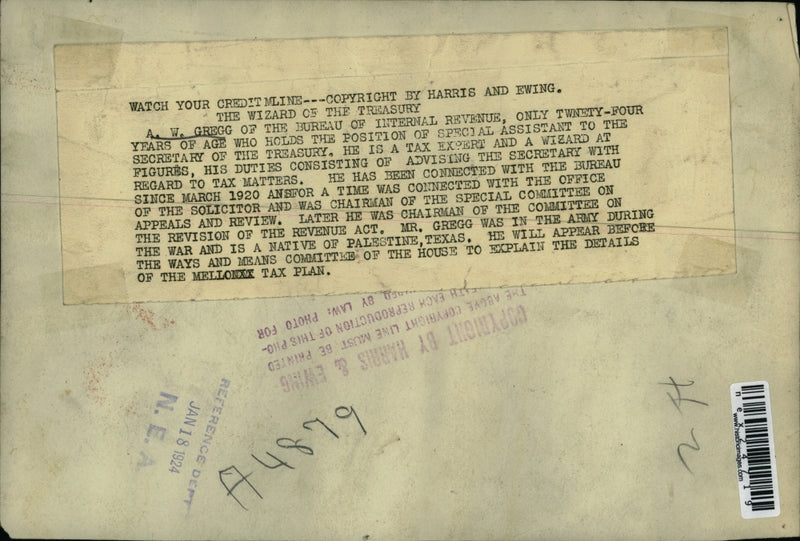 WATCH YOUR CREDIT MLINE---COPYRIGHT BY HARRIS AND EWING.
THE WIZARD OF THE TREASURY
A. W. GREGG OF THE BUREAU OF INTERNAL REVENUE, ONLY TWNETY-FOUR
YEARS OF AGE WHO HOLDS THE POSITION OF SPECIAL ASSISTANT TO THE
SECRETARY OF THE TREASURY. HE IS A TAX EXPERT AND A WIZARD AT
FIGURES, HIS DUTIES CONSISTING OF ADVISING THE SECRETARY WITH
REGARD TO TAX MATTERS. HE HAS BEEN CONNECTED WITH THE BUREAU
SINCE MARCH 1920 ANSFOR A TIME WAS CONNECTED WITH THE OFFICE
OF THE SOLICITOR AND WAS CHAIRMAN OF THE SPECIAL COMMITTEE ON
APPEALS AND REVIEW. LATER HE WAS CHAIRMAN OF THE COMMITTEE ON
THE REVISION OF THE REVENUE ACT. MR. GREGG WAS IN THE ARMY DURING
THE WAR AND IS A NATIVE OF PALESTINE,TEXAS. HE WILL APPEAR BEFORE
THE WAYS AND MEANS COMMITTEE OF THE HOUSE TO EXPLAIN THE DETAILS
OF THE MELLONXX TAX PLAN.
COPYRIGHT BY HARRIS & EWING
THE ABOVE COPYRIGHT LINE MUST BE PRINTED
WITH EACH REPRODUCTION OF THIS PHO-
BY LAW: PHOTO FOR
REFERENCE DEPT
JAN 18 1924
N. E. A
A4879
2 H
www.historicimages.com
nex24719